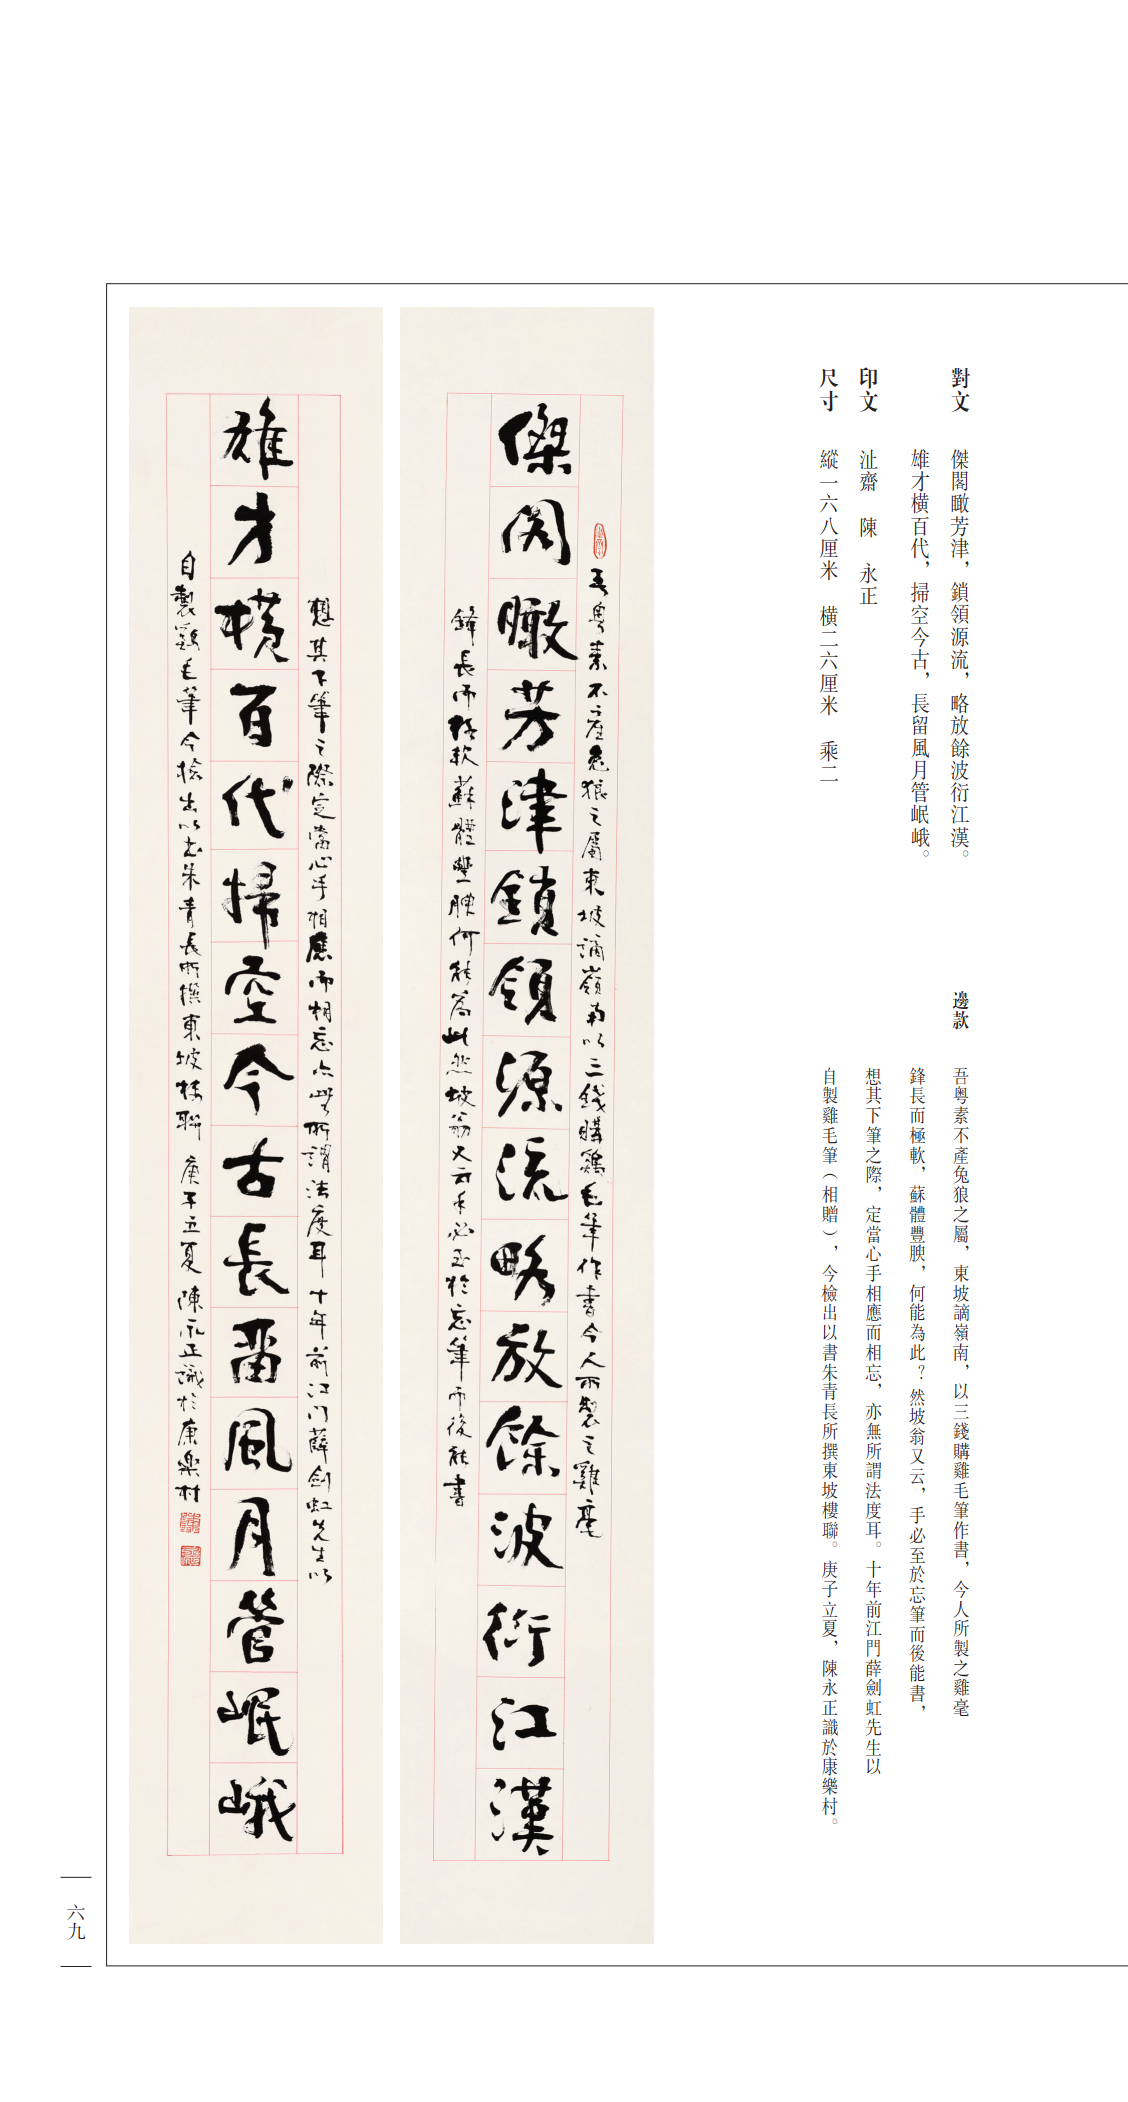 對文 傑閣瞰芳津，鎖領源流，略放餘波衍江漢。
雄才橫百代，掃空今古，長留風月管岷峨。
印文 沚齋 陳 永正
尺寸 縱一六八厘米 橫二六厘米 乘二
邊款 吾粵素不產兔狼之屬，東坡謫嶺南，以三錢購雞毛筆作書，今人所製之雞毫
鋒長而極軟，蘇體豐腴，何能為此？然坡翁又云，手必至於忘筆而後能書，
想其下筆之際，定當心手相應而相忘，亦無所謂法度耳。十年前江門薛劍虹先生以
自製雞毛筆（相贈），今檢出以書朱青長所撰東坡樓聯。庚子立夏，陳永正識於康樂村。
吾粵素不產兔狼之屬東坡謫嶺南以三錢購鷄毛筆作書今人所製之雞毫
傑閣瞰芳津鎖領源流略放餘波衍江漢
鋒長而極軟蘇體豐腴何能為此然坡翁又云手必至於忘筆而後能書
想其下筆之際定當心手相應而相忘亦無所謂法度耳十年前江门薛劍虹先生以
雄才橫百代掃空今古長留風月管岷峨
自製鷄毛筆今檢出以書朱青長所撰東坡樓聯 庚子立夏 陳永正識於康樂村
六九